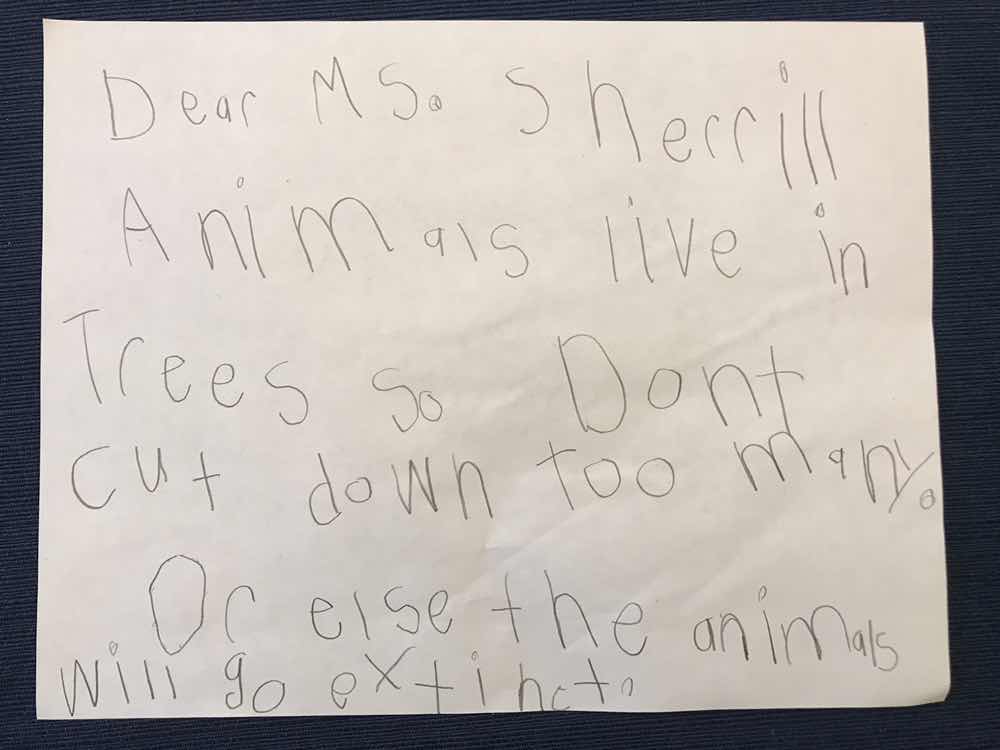 Dear MS. Sherrill
Animals live in
Trees so Dont
cut down too many.
Or else the animals
will go extinct.